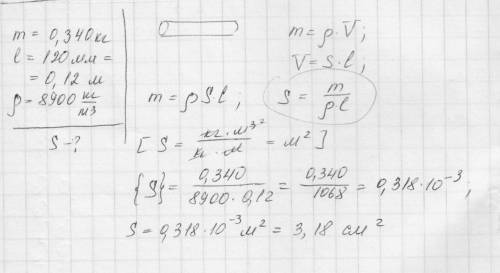 m = 0,340 кг
l = 120 мм =
= 0,12 м
ρ = 8900 кг/м3
S - ?
m = ρ·V;
V = S·l;
m = ρS·l; S = m/ρ·l
[S = кг·м³/кг·м = м²]
{S} = 0,340/8900·0,12 = 0,340/1068 = 0,318·10⁻³;
S = 0,318·10⁻³ м² = 3,18 см²